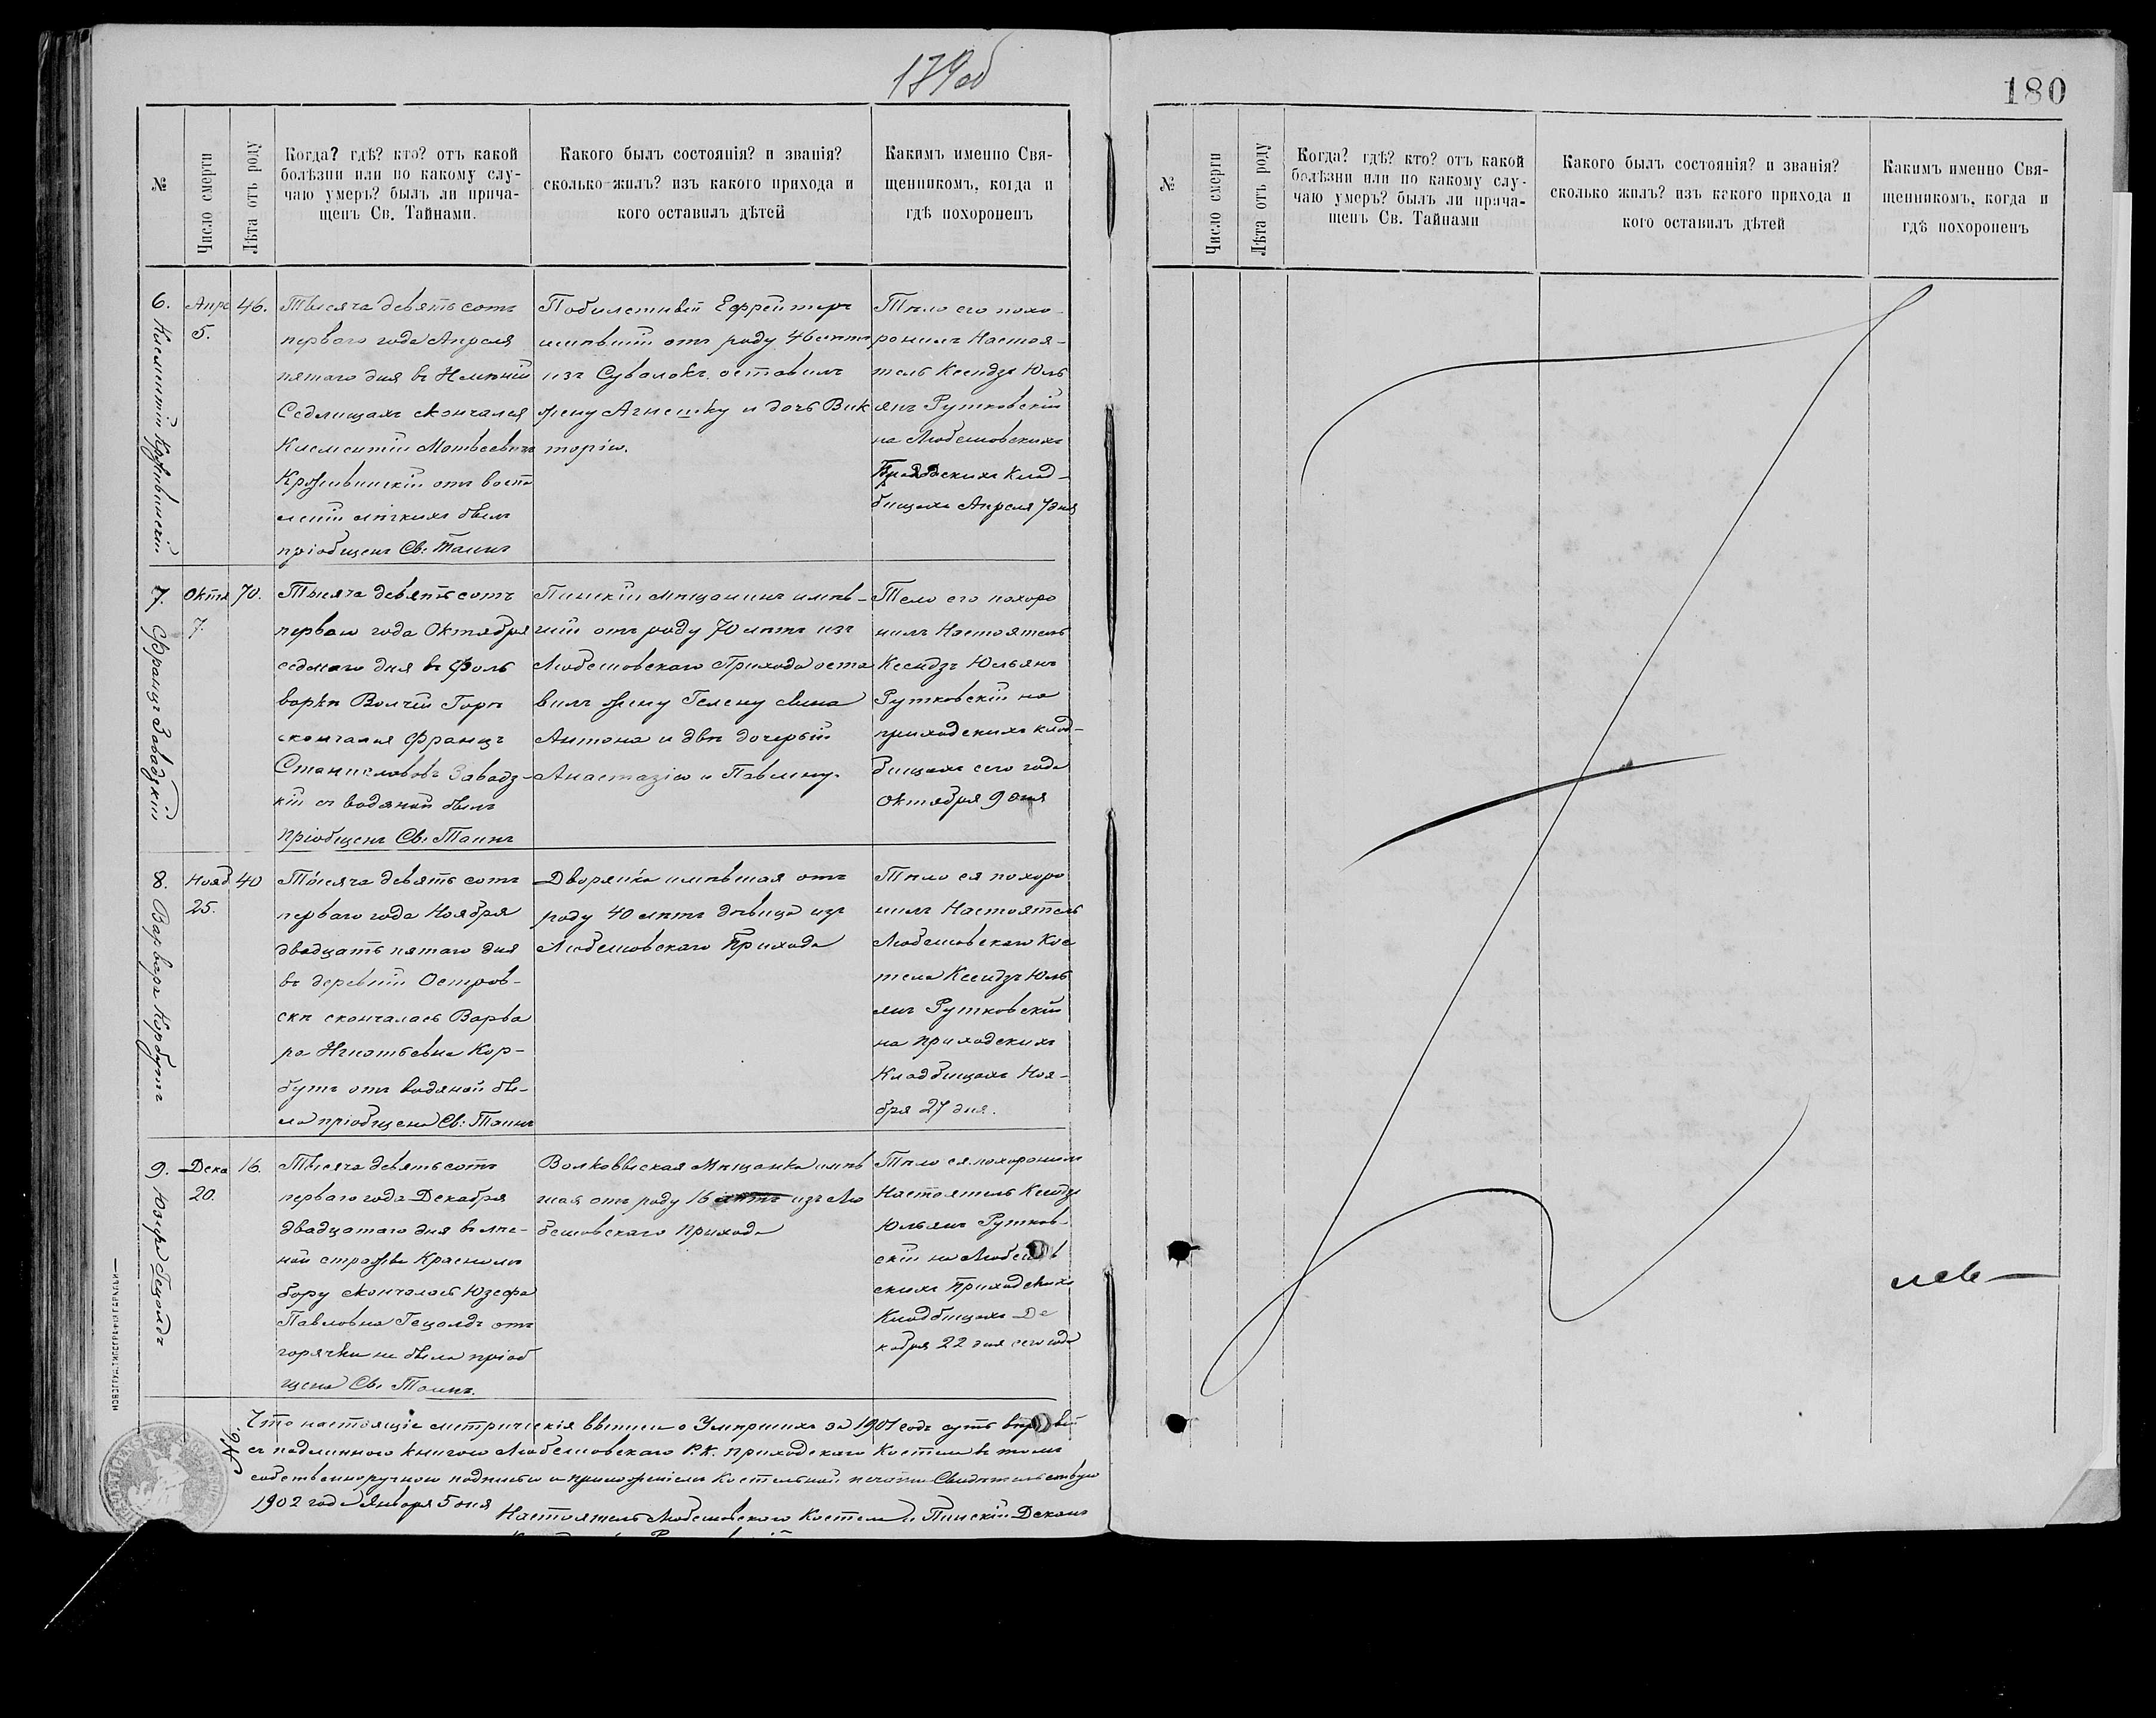 179об
180
№
Число смерти
Лѣта отъ роду
Когда? гдѣ? кто? отъ какой
болѣзни или по какому слу-
чаю умеръ? былъ ли прича-
щенъ Св. Тайнами.
Какого былъ состоянія? и званія?
сколько жилъ? изъ какого прихода и
кого оставилъ дѣтей
Какимъ именно Свя-
щенникомъ, когда и
гдѣ похороненъ
6.
Апре
5.
46.
Тысяча девятьсотъ
перваго года Апреля
пятаго дня въ
Седлищахъ скончался
Клементій Матвеевичъ
отъ воспа
леній лѣгкихъ былъ
пріобщенъ Св: Таинъ
Ефрейторъ
имѣвшій отъ роду 46 лѣтъ
изъ Сувалокъ оставилъ
жену Агнешку и дочь Вик
торію.
Тѣло его похо-
ронилъ Настоя-
тель Ксендзъ Юль
янъ Рутковскій
на Любешовскихъ
Приходскихъ Клад-
бищахъ Апреля 7 дня
7. Францъ Завадзкій
Октя
7.
70.
Тысяча девятьсотъ
перваго года Октября
седмаго дня въ Фоль
варкѣ Волчей Горѣ
скончался Францъ
Станиславовъ Завадз-
кій съ водяной былъ
пріобщенъ Св: Таинъ
Пинскій мѣщанинъ имѣв-
шій отъ роду 70 лѣтъ изъ
Любешовскаго Прихода оста
вилъ жену Гелену сына
Антона и двѣ дочерый
Анастазію и Павлину.
Тело его похоро
нилъ Настоятель
Ксендзъ Юльянъ
Рутковскій на
приходскихъ клад-
бищахъ сего года
Октября 9 дня
8. Варвара Корбутъ
Нояб
25.
40
Тысяча девятьсотъ
перваго года Ноября
двадцать пятаго дня
въ деревни Островъ-
скѣ скончалась Варва
ра Игнатьевна Кор-
бутъ отъ водяной бы-
ла пріобщена Св: Таинъ
Дворянка имѣвшая отъ
роду 40 лѣтъ дѣвица изъ
Любешовскаго Прихода
Тѣло ея похоро
нилъ Настоятель
Любешовскаго Кос
тела Ксендзъ Юль
янъ Рутковскій
на приходскихъ
Кладбищахъ Ноя-
бря 27 дня.
9. Юзефа Гецольдъ
Дека
20.
16.
Тысяча девятьсотъ
перваго года Декабря
двадцатаго дня въ лѣс-
ной стражѣ Красномъ
бору скончалась Юзефа
Павловна Гецолдъ отъ
горячки не была пріоб
щена Св: Таинъ.
Волковыская Мѣщанка имѣв
шая отъ роду 16 лѣтъ изъ Лю
бешовскаго Прихода
Тѣло ея похоронилъ
Настоятель Ксендзъ
Юльянъ Рутков-
скій на Любешов
скихъ Приходскихъ
Кладбищахъ Де
кабря 22 дня сего года
Что настоящіе метрическія выписи о Умершихъ за 1901 годъ суть
съ подлинною книгою Любешовскаго Р.К. Приходскаго Костела въ томъ
собственноручною подписью и приложеніемъ Костельной печати Свидѣтельствую
1902 года Января 5 дня
Настоятель Любешовскаго Костела и Пинскій Деканъ
№
Число смерти
Лѣта отъ роду
Когда? гдѣ? кто? отъ какой
болѣзни или по какому слу-
чаю умеръ? былъ ли прича-
щенъ Св. Тайнами
Какого былъ состоянія? и званія?
сколько жилъ? изъ какого прихода и
кого оставилъ дѣтей
Какимъ именно Свя-
щенникомъ, когда и
гдѣ похороненъ